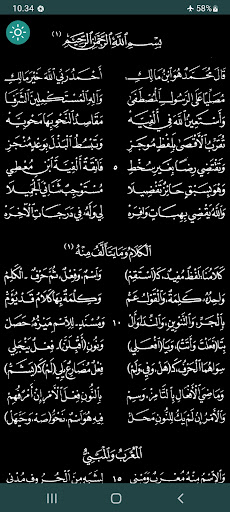 10.34 58%
بِسْمِ اللَّهِ الرَّحْمَنِ الرَّحِيمِ (١)
قَالَ مُحَمَّدٌ هُوَ ابْنُ مَالِكِ أَحْمَدُ رَبِّي اللَّهَ خَيْرَ مَالِكِ
مُصَلِّيًا عَلَى الرَّسُولِ الْمُصْطَفَى وَآلِهِ الْمُسْتَكْمِلِينَ الشَّرَفَا
وَأَسْتَعِينُ اللَّهَ فِي أَلْفِيَّهْ مَقَاصِدُ النَّحْوِ بِهَا مَحْوِيَّهْ
تُقَرِّبُ الْأَقْصَى بِلَفْظٍ مُوجَزِ وَتَبْسُطُ الْبَذْلَ بِوَعْدٍ مُنْجَزِ
وَتَقْتَضِي رِضًا بِغَيْرِ سُخْطِ ٥ فَائِقَةً أَلْفِيَّةَ ابْنِ مُعْطِي
وَهُوَ بِسَبْقٍ حَائِزٌ تَفْضِيلَا مُسْتَوْجِبٌ ثَنَائِيَ الْجَمِيلَا
وَاللَّهُ يَقْضِي بِهِبَاتٍ وَافِرَهْ لِي وَلَهُ فِي دَرَجَاتِ الْآخِرَهْ
الْكَلَامُ وَمَا يَتَأَلَّفُ مِنْهُ (١)
كَلَامُنَا لَفْظٌ مُفِيدٌ، كَـ(اسْتَقِمْ) وَاسْمٌ، وَفِعْلٌ، ثُمَّ حَرْفٌ - الْكَلِمْ
وَاحِدُهُ كَلِمَةٌ، وَالْقَوْلُ عَمْ وَكِلْمَةٌ بِهَا كَلَامٌ قَدْ يُؤَمْ
بِالْجَرِّ، وَالتَّنْوِينِ، وَالنِّدَا، وَأَلْ ١٠ وَمُسْنَدٍ - لِلِاسْمِ تَمْيِيزٌ حَصَلْ
بِتَا (فَعَلْتَ وَأَتَتْ)، وَيَا (افْعَلِي) وَنُونِ (أَقْبِلَنَّ) - فِعْلٌ يَنْجَلِي
سِوَاهُمَا الْحَرْفُ، كَـ(هَلْ، وَفِي، وَلَمْ) فِعْلٌ مُضَارِعٌ يَلِي (لَمْ) كَـ(يَشَمْ)
وَمَاضِيَ الْأَفْعَالِ بِالتَّا مِزْ، وَسِمْ بِالنُّونِ فِعْلَ الْأَمْرِ إِنْ أَمْرٌ فُهِمْ
وَالْأَمْرُ إِنْ لَمْ يَكُ لِلنُّونِ مَحَلْ فِيهِ هُوَ اسْمٌ، نَحْوُ (صَهْ، وَحَيَّهَلْ)
الْمُعْرَبُ وَالْمَبْنِيُّ
وَالِاسْمُ مِنْهُ مُعْرَبٌ وَمَبْنِي ١٥ لِشَبَهٍ مِنَ الْحُرُوفِ مُدْنِي